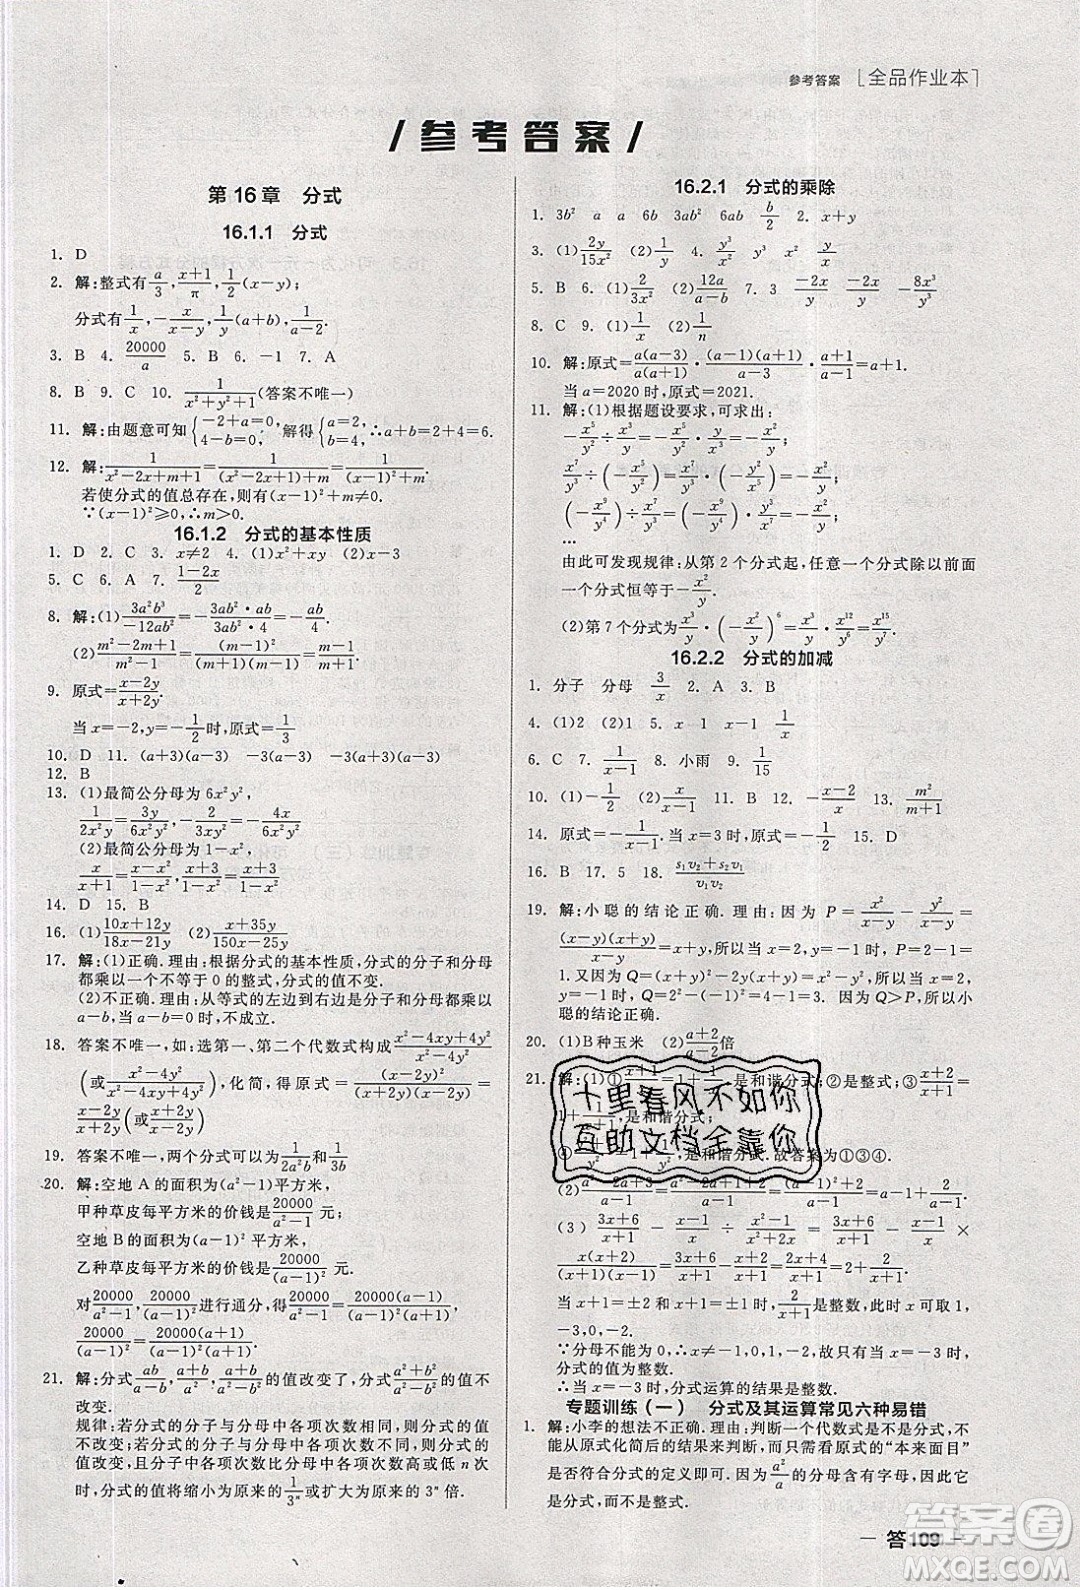 参考答案 [全品作业本]
/参考答案/
第16章 分式
16.1.1 分式
1. D
2. 解:整式有a/3,(x+1)/π,1/2(x-y);
分式有1/x,-x/(x-y),1/4(a+b),1/(a-2).
3. B 4. 20000/a 5. B 6. -1 7. A
8. B 9. C 10. 1/(x²+y²+1)(答案不唯一)
11. 解:由题意可知{-2+a=0, 4-b=0,解得{a=2, b=4,∴a+b=2+4=6.
12. 解:1/(x²-2x+m+1)=1/((x²-2x+1)+m)=1/((x-1)²+m).
若使分式的值总存在,则有(x-1)²+m≠0.
∵(x-1)²≥0,∴m>0.
16.1.2 分式的基本性质
1. D 2. C 3. x≠2 4. (1)x²+xy (2)x-3
5. C 6. A 7. (1-2x)/2
8. 解:(1)3a²b³/(-12ab²)=-(3ab²·ab)/(3ab²·4)=-ab/4.
(2)(m²-2m+1)/(m²-1)=(m-1)²/((m+1)(m-1))=(m-1)/(m+1)
9. 原式=(x-2y)/(x+2y).
当x=-2,y=-1/2时,原式=1/3
10. D 11. (a+3)(a-3) -3(a-3) -3(a+3)
12. B
13. (1)最简公分母为6x²y²,
1/(2x²y)=3y/(6x²y²),-2/(3xy²)=-4x/(6x²y²)
(2)最简公分母为1-x²,
x/(x+1)=(x-x²)/(1-x²),(x+3)/(1-x²)=(x+3)/(1-x²)
14. D 15. B
16. (1)(10x+12y)/(18x-21y) (2)(x+35y)/(150x-25y)
17. 解:(1)正确.理由:根据分式的基本性质,分式的分子和分母
都乘以一个不等于0的整式,分式的值不变.
(2)不正确.理由:从等式的左边到右边是分子和分母都乘以
a-b,当a-b=0时,不成立.
18. 答案不唯一,如:选第一、第二个代数式构成(x²-4xy+4y²)/(x²-4y²)
(或(x²-4y²)/(x²-4xy+4y²)),化简,得(x²-4xy+4y²)/(x²-4y²)=(x-2y)²/((x+2y)(x-2y))=
(x-2y)/(x+2y)(或(x+2y)/(x-2y))
19. 答案不唯一,两个分式可以为1/(2a²b)和1/(3b)
20. 解:空地A的面积是(a²-1)平方米,
甲种草皮每平方米的价钱是20000/(a²-1)元;
空地B的面积是(a-1)²平方米,
乙种草皮每平方米的价钱是20000/(a-1)²元.
对20000/(a²-1),20000/(a-1)²进行通分,得20000/(a²-1)=20000(a-1)/((a+1)(a-1)²),
20000/(a-1)²=20000(a+1)/((a+1)(a-1)²)
21. 解:分式ab/(a-b),(a+b)/a²,a²/(a-b)的值改变了,(a²+b²)/(a²-b²)的值不
改变.
规律:若分式的分子与分母中各项次数相同,则分式的值
不改变;若分式的分子与分母中各项次数不同,则分式的
值改变,且分子中各项次数比分母中各项次数低n次时,
分式的值将缩小为原来的1/3ⁿ或扩大为原来的3ⁿ倍.
16.2.1 分式的乘除
1. 3b² a a 6b 3ab² 6ab b/2 2. x+y
3. (1)2y/(15x²) (2)6x 4. y³/x³ y²/x² y³/x³
5. B 6. (1)2/(3x²) (2)12a/(a-b) 7. 3 -2x/y -2x/y -8x³/y³
8. C 9. (1)1/x (2)1/n
10. 解:原式=a(a-3)/(a(a+1))·(a-1)(a+1)/(a-3)·(a+1)/(a-1)=a+1.
当a=2020时,原式=2021.
11. 解:(1)根据题设要求,可求出:
-x⁵/y²÷x³/y=-x⁵/y²·y/x³=-x²/y;
x⁷/y³÷(-x⁵/y²)=x⁷/y³·(-y²/x⁵)=-x²/y;
(-x⁹/y⁴)÷x⁷/y³=(-x⁹/y⁴)·y³/x⁷=-x²/y;
…
由此可发现规律:从第2个分式起,任意一个分式除以前面
一个分式恒等于-x²/y.
(2)第7个分式为x³/y·(-x²/y)⁶=x³/y·x¹²/y⁶=x¹⁵/y⁷
16.2.2 分式的加减
1. 分子 分母 3/x 2. A 3. B
4. (1)2 (2)x 5. x-1 x-1 1/x
6. C 7. 1/(x-1) 8. 小雨 9. 1/15
10. (1)-1/4 (2)x/(x-1) 11. B 12. (-x-2)/x 13. m²/(m+1)
14. 原式=-1/(x-1).当x=3时,原式=-1/2 15. D
16. B 17. 5 18. (s₁v₂+s₂v₁)/(v₁v₂)
19. 解:小聪的结论正确.理由:因为P=x²/(x-y)-y²/(x-y)=
(x+y)(x-y)/(x-y)=x+y,所以当x=3,y=-2时,P=x+y=3-2=
1.又因为Q=(x+y)(x-y)-y(x+y)=x²-xy,当x=2,
y=-1时,Q=4+2=6.因为Q>P,所以小
聪的结论正确.
20. (1)B种玉米 (2)(a+2)/(a-2)倍
21. 解:(1)①(x+1)/x=1+1/x,是和谐分式;②是整式;③(x+2)/(x+1)=
1+1/(x+1),是和谐分式;
是和谐分式.故答案为①③④.
(3)(3x+6)/(x+1)-(x-1)/x÷(x²-1)/(x²+2x)=(3x+6)/(x+1)-(x-1)/x×
x(x+2)/((x+1)(x-1))=(3x+6)/(x+1)-(x+2)/(x+1)=(2x+4)/(x+1)=2+2/(x+1),所以
当x+1=±1或x+1=±2时,2/(x+1)为整数,此时x可取
-3,0,-2.
∵分母不能为0,∴x≠-1,0,1,-2,故只有当x=-3时,
分式的值为整数.
∴当x=-3时,分式运算的结果是整数.
专题训练(一) 分式及其运算常见六种易错
1. 解:小李的想法不正确.理由:判断一个代数式是不是分式,不
能从原式化简后的结果来判断,而要看原式的“本来面目”
是否符合分式的定义即可.因为a²/a的分母含有字母,所以a²/a
是分式,而不是整式.
十里春风不如你
互助文档全靠你
答案圈
MXQE.COM
— 答109 —